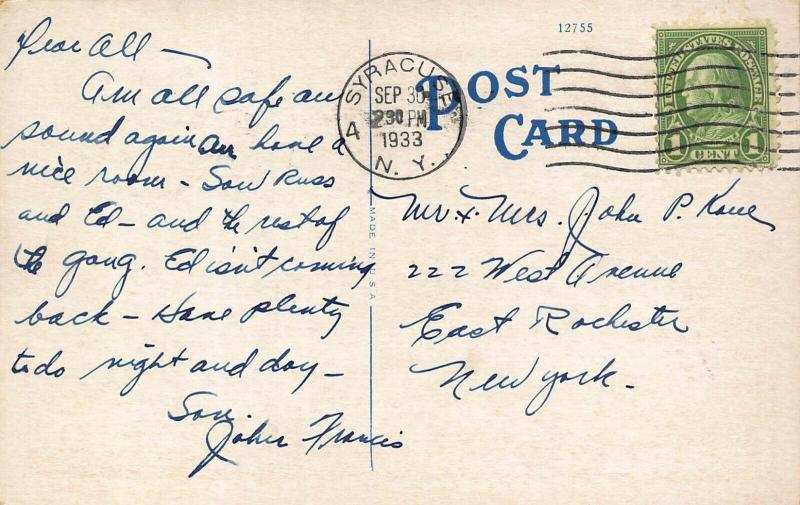 Dear All —
Am all safe an
sound again an have a
nice room - Saw Russ
and Ed - and the rest of
the gang. Ed isn't coming
back - Have plenty
to do night and day -
Son.
John Francis
MADE IN U.S.A
12755
POST
CARD
SYRACUSE
SEP 30
230 PM
1933
4
N.Y.
UNITED STATES POSTAGE
1 CENT 1
Mr & Mrs. John P. Kane
222 West Avenue
East Rochester
New York.